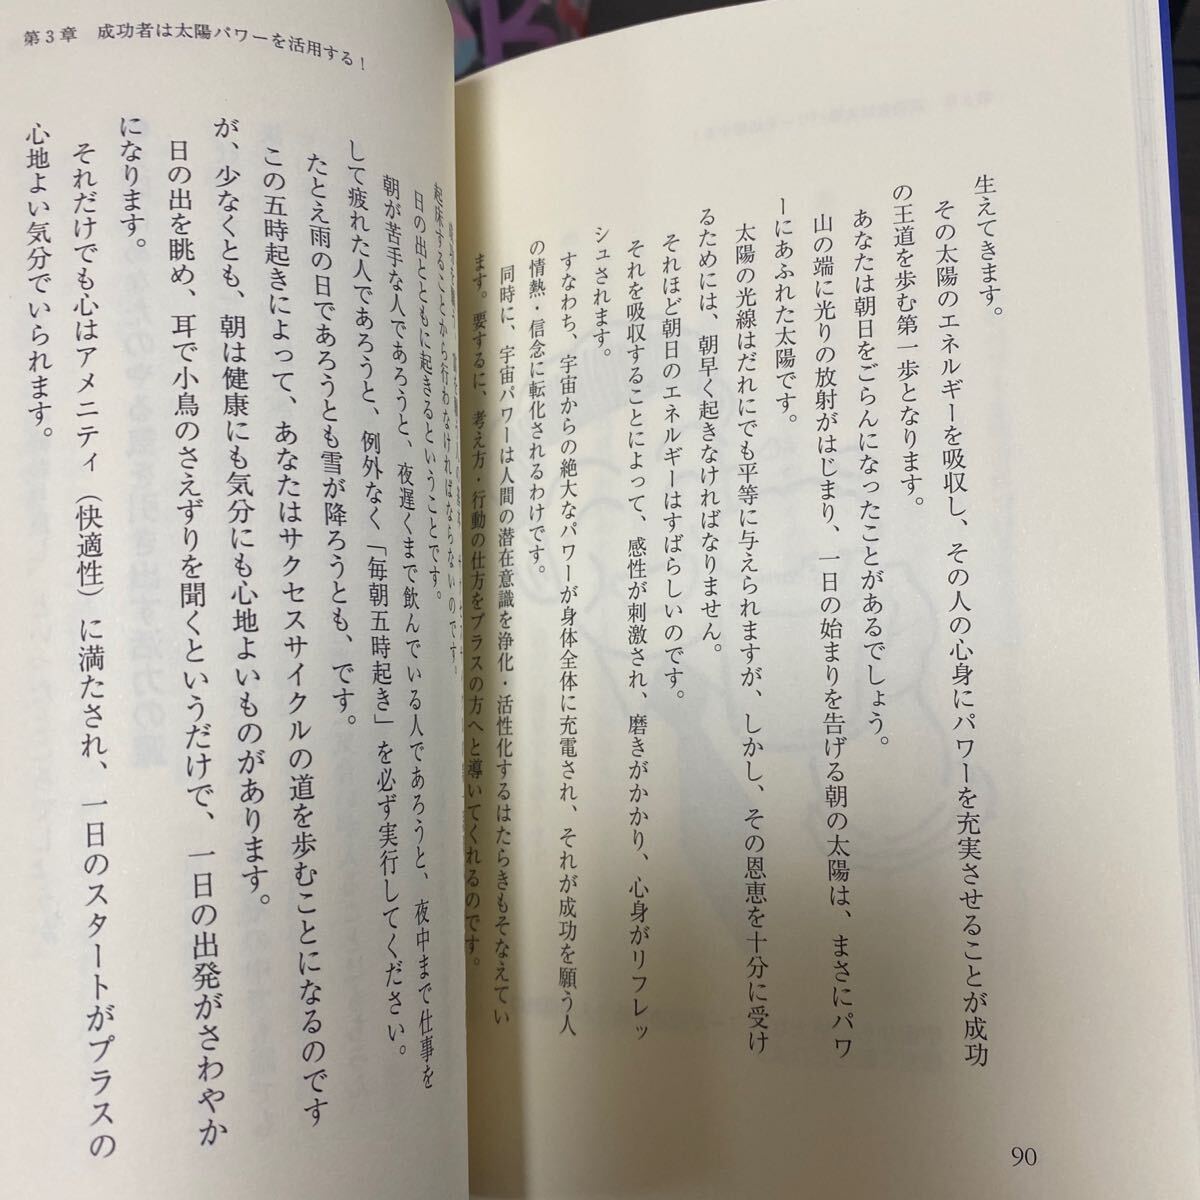 生えてきます。
その太陽のエネルギーを吸収し、その人の心身にパワーを充実させることが成功
の王道を歩む第一歩となります。
あなたは朝日をごらんになったことがあるでしょう。
山の端に光りの放射がはじまり、一日の始まりを告げる朝の太陽は、まさにパワ
ーにあふれた太陽です。
太陽の光線はだれにでも平等に与えられますが、しかし、その恩恵を十分に受け
るためには、朝早く起きなければなりません。
それほど朝日のエネルギーはすばらしいのです。
それを吸収することによって、感性が刺激され、磨きがかかり、心身がリフレッ
シュされます。
すなわち、宇宙からの絶大なパワーが身体全体に充電され、それが成功を願う人
の情熱・信念に転化されるわけです。
同時に、宇宙パワーは人間の潜在意識を浄化・活性化するはたらきもそなえてい
ます。要するに、考え方・行動の仕方をプラスの方へと導いてくれるのです。
90
第3章 成功者は太陽パワーを活用する！
起床することから行わなければならないのです。
日の出とともに起きるということです。
朝が苦手な人であろうと、夜遅くまで飲んでいる人であろうと、夜中まで仕事を
して疲れた人であろうと、例外なく「毎朝五時起き」を必ず実行してください。
たとえ雨の日であろうとも雪が降ろうとも、です。
この五時起きによって、あなたはサクセスサイクルの道を歩むことになるのです
が、少なくとも、朝は健康にも気分にも心地よいものがあります。
日の出を眺め、耳で小鳥のさえずりを聞くというだけで、一日の出発がさわやか
になります。
それだけでも心はアメニティ（快適性）に満たされ、一日のスタートがプラスの
心地よい気分でいられます。